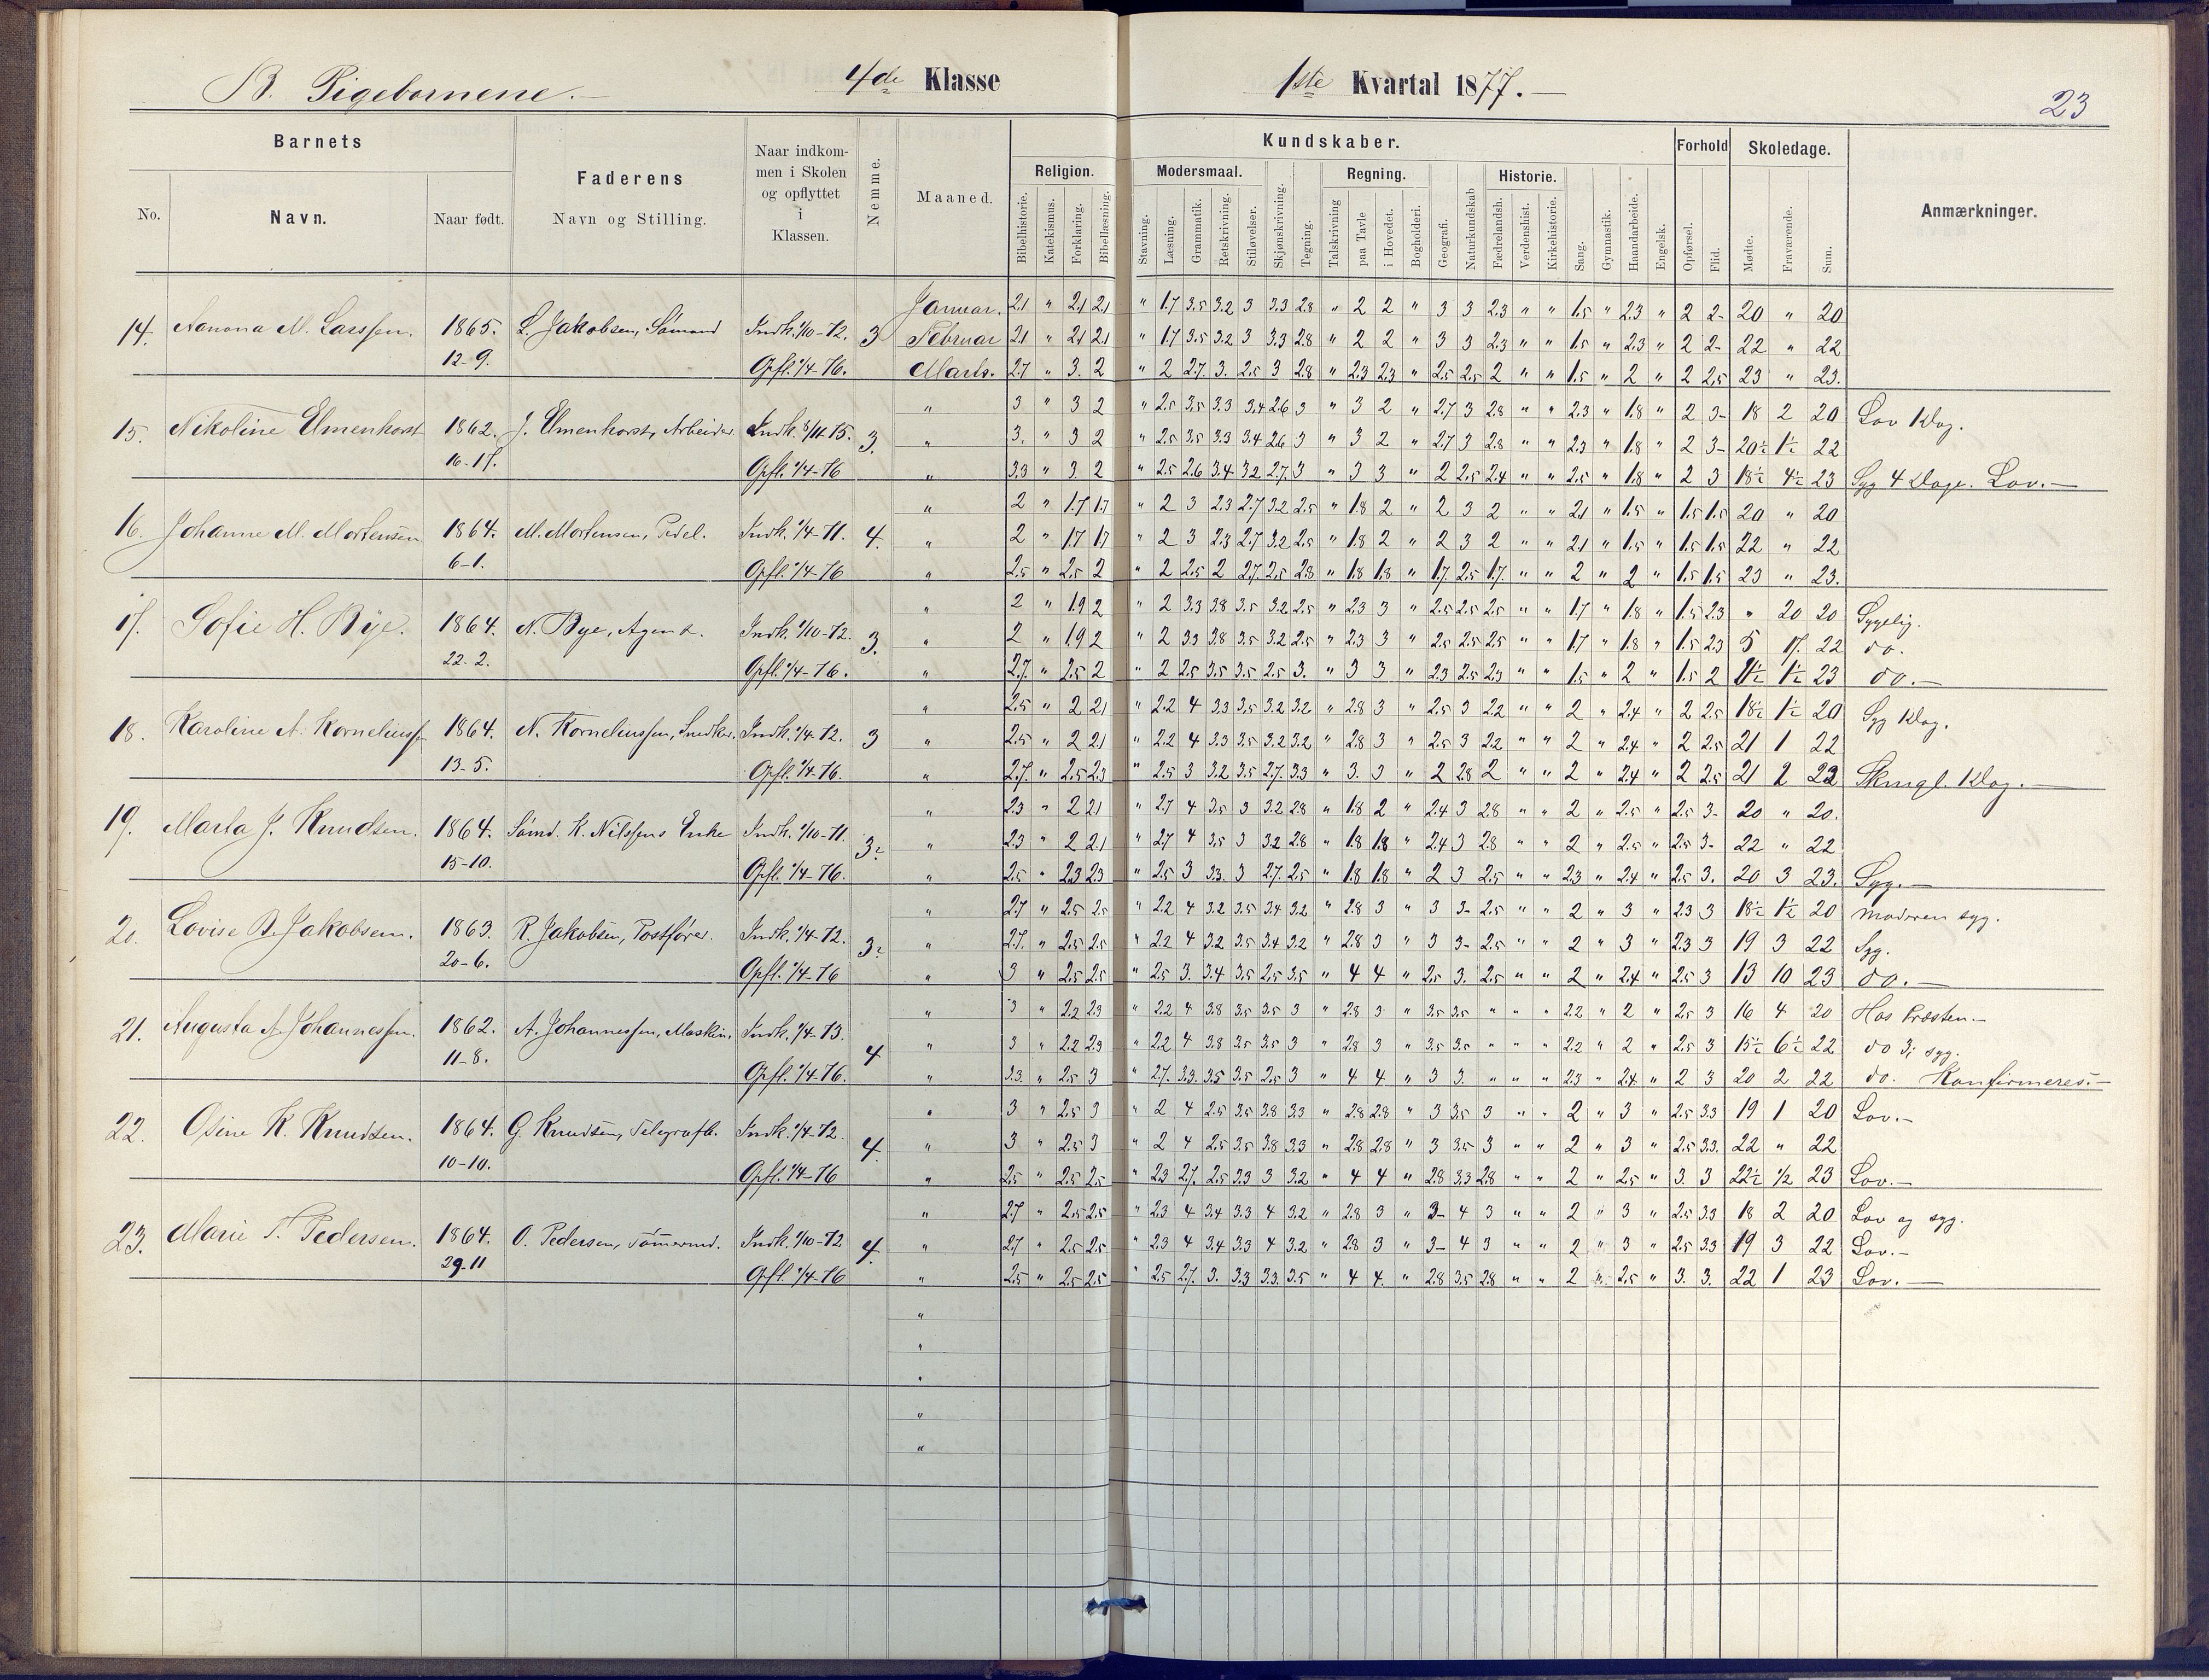 B. Pigebørnene.
4de Klasse
1ste Kvartal 1877.
23
Barnets
No. Navn. Naar født.
Faderens
Navn og Stilling.
Naar indkom-
men i Skolen
og opflyttet
i
Klassen.
Nemme.
Maaned.
Kundskaber.
Religion.
Bibelhistorie. Katekismus. Forklaring. Bibellæsning.
Modersmaal.
Stavning. Læsning. Grammatik. Retskrivning. Stiløvelser.
Skjønskrivning. Tegning.
Regning.
Talskrivning paa Tavle i Hovedet.
Bogholderi. Geografi. Naturkundskab
Historie.
Fædrelandsh. Verdenshist. Kirkehistorie.
Sang. Gymnastik. Haandarbeide. Engelsk.
Forhold
Opførsel. Flid.
Skoledage.
Mødte. Fraværende. Sum.
Anmærkninger.
Januar. 2.1 " 2.1 2.1 " 1.7 3.5 3.2 3 3.3 2.8 " 2 2 " 3 3 2.3 " " 1.5 " 2.3 " 2 2- 20 " 20
14. M. Larssen. 1865. L. Jakobsen, Sømand Indk. 1/10-72. 3 Februar 2.1 " 2.1 2.1 " 1.7 3.5 3.2 3 3.3 2.8 " 2 2 " 3 3 2.3 " " 1.5 " 2.3 " 2 2- 22 " 22
12-9. Opfl. 1/4-76. Marts. 2.7 " 3. 2 " 2 2.7. 3. 2.5 3 2.8 " 2.3 2.3 " 2.5 2.5 2 " " 1.5 " 2 " 2 2.5 23 " 23.
" 3 " 3 2 " 2.5 3.5 3.3 3.4 2.6 3 " 3 2 " 2.7 3 2.8 " " 2.3 " 1.8 " 2 3- 18 2 20 Lov 1 Dag.
15. Nikoline Elmenhorst 1862. J. Elmenhorst, Arbeider. Indk. 8/11-75. 3. " 3. " 3 2 " 2.5 3.5 3.3 3.4 2.6 3 " 3 2 " 2.7 3 2.8 " " 2.3 " 1.8 " 2 3- 20½ 1½ 22
16-17. Opfl. 1/4-76 " 3.3 " 3. 2 " 2.5 2.6 3.4 3.2 2.7. 3 " 3 3 " 2 2.5 2.4 " " 2.5 " 1.8 " 2 3 18½ 4½ 23 Syg 4 Dage. Lov.
" 2 " 1.7 1.7 " 2 3 2.3 2.7 3.2 2.5 " 1.8 2 " 2 3 2 " " 2.1 " 1.5 " 1.5 1.5 20 " 20
16. Johanne M. Mortensen 1864. M. Mortensen, Pedel. Indk. 1/4-71. 4. " 2 " 1.7 1.7 " 2 3 2.3 2.7 3.2 2.5 " 1.8 2 " 2 3 2 " " 2.1 " 1.5 " 1.5 1.5 22 " 22
6-1. Opfl. 1/4-76 " 2.5 " 2.5 2 " 2 2.5 2 2.7. 2.5 2.8 " 1.8 1.8 " 1.7. 2.5 1.7. " " 2 " 2 " 1.5 1.5 23 " 23.
" 2 " 1.9 2 " 2 3.3 3.8 3.5 3.2 2.5 " 2.3 3 " 2.5 2.5 2.5 " " 1.7 " 1.8 " 1.5 2.3 " 20 20 Sygelig.
17. Sofie H. Bye. 1864. N. Bye, Agent. Indk. 1/10-72. 3. " 2 " 1.9 2 " 2 3.3 3.8 3.5 3.2 2.5 " 2.3 3 " 2.5 2.5 2.5 " " 1.7 " 1.8 " 1.5 2.3 5 17. 22 do.
22-2. Opfl. 1/4-76. " 2.7. " 2.5 2 " 2 2.5 3.5 3.5 2.5 3. " 3 3 " 2.3 2.5 2.3 " " 1.5 " 2 " 1.5 2 1½ 23 do.
" 2.5 " 2 2.1 " 2.2 4 3.3 3.5 3.2 3.2 " 2.8 3 " 2.5 3 2.2 " " 2 " 2.4 " 2 2.5 18½ 1½ 20 Syg 1 Dag.
18. Karoline A. Korneliussen 1864. N. Korneliussen, Snedker. Indk. 1/4-72. 3 " 2.5 " 2 2.1 " 2.2 4 3.3 3.5 3.2 3.2 " 2.8 3 " 2.5 3 2.2 " " 2 " 2.4 " 2 2.5 21 1 22
13-5. Opfl. 1/4-76. " 2.7. " 2.5 2.3 " 2.5 3 3.2 3.5 2.7. 3.3 " 3. 3 " 2 2.8 2 " " 2 " 2.4 " 2 2.5 21 2 23 1 Dag.
" 2.3 " 2 2.1 " 2.7 4 3.5 3 3.2 2.8 " 1.8 2 " 2.4 3 2.8 " " 2 " 2.5 " 2.5 3- 20 " 20.
19. Marta J. Knudsen. 1864. Sømd. K. Nilssens Enke Indk. 1/10-71. 3½ " 2.3 " 2 2.1 " 2.7 4 3.5 3 3.2 2.8 " 1.8 1.8 " 2.4 3 2.8 " " 2 " 2.5 " 2.5 3- 22 " 22
15-10. Opfl. 1/4-76. " 2.5 " 2.3 2.3 " 2.5 3 3.3. 3 2.7. 2.5 " 1.8 1.8 " 2 3 2.5 " " 2.3 " 2.4 " 2.5 3. 20 3 23. Syg.
" 2.7 " 2.5 2.5 " 2.2 4 3.2 3.5 3.4 3.2 " 2.8 3 " 3 3- 2.5 " " 2 " 3 " 2.3 3 18½ 1½ 20 Moderen syg.
20. Lovise B. Jakobsen. 1863. R. Jakobsen, Postfører. Indk. 1/4-72. 3½ " 2.7. " 2.5 2.5 " 2.2 4 3.2 3.5 3.4 3.2 " 2.8 3 " 3 3- 2.5 " " 2 " 3 " 2.3 3 19 3 22 Syg.
20-6. Opfl. 1/4-76 " 3 " 2.5 2.5 " 2.5 3. 3.4 3.5 2.5 3.5 " 4 4 " 2.5 3. 2.5 " " 2 " 2.4 " 2.5 3 13 10 23 do.
" 3 " 2.2 2.3 " 2.2 4 3.8 3.5 3.5 3 " 2.8 3 " 3.5 3.5 " " " 2.2 " 2 " 2.5 3 16 4 20 Hos Præsten.
21. Augusta A. Johannessen. 1862. A. Johannessen, Maskin. Indk. 1/4-73. 4 " 3 " 2.2 2.3 " 2.2 4 3.8 3.5 3.5 3 " 2.8 3 " 3.5 3.5 " " " 2.2 " 2 " 2.5 3 15½ 6½ 22 do 3; syg.
11-8. Opfl. 1/4-76. " 3.3. " 2.5 3 " 2.7. 3.3. 3.5 3.5 2.5 3 " 4 4 " 3 3. " " " 2.3 " 2.4 " 2 3 20 2 22 do. Konfirmeres.
" 3 " 2.5 3 " 2 4 2.5 3.5 3.8 3.3 " 2.8 2.8 " 3 3.5 3 " " 2 " 3 " 2.5 3.3 19 1 20 Lov.
22. Osine K. Knudsen. 1864. G. Knudsen, Telegrafb. Indk. 1/4-72. 4 " 3 " 2.5 3 " 2 4 2.5 3.5 3.8 3.3 " 2.8 2.8 " 3 3.5 3 " " 2 " 3 " 2.5 3.3. 22 " 22
10-10. Opfl. 1/4-76 " 2.5 " 2.5 2.5 " 2.3 2.7. 2.5 3.3 3 3.2 " 4 4 " 2.8 3.3 2.8 " " 2 " 2.5 " 3. 3 22½ 1/2 23 Lov.
" 2.7 " 2.5 2.5 " 2.3 4 3.4 3.3 4 3.2 " 2.8 3 " 3- 4 3 " " 2 " 3 " 2.5 3.3 18 2 20 Lov og syg.
23. Marie T. Pedersen. 1864. O. Pedersen, Tømermd. Indk. 1/10-72 4. " 2.7 " 2.5 2.5 " 2.3 4 3.4 3.3 4 3.2 " 2.8 3 " 3- 4 3 " " 2 " 3 " 2.5 3.3 19 3 22 Lov.
29-11 Opfl. 1/4-76 " 2.5 " 2.5 2.5 " 2.5 2.7. 3. 3.3 3.3. 3.5 " 4 4. " 2.8 3.5 2.8 " " 2 " 2.5 " 3. 3. 22 1 23 Lov.
"
"
"
"
"